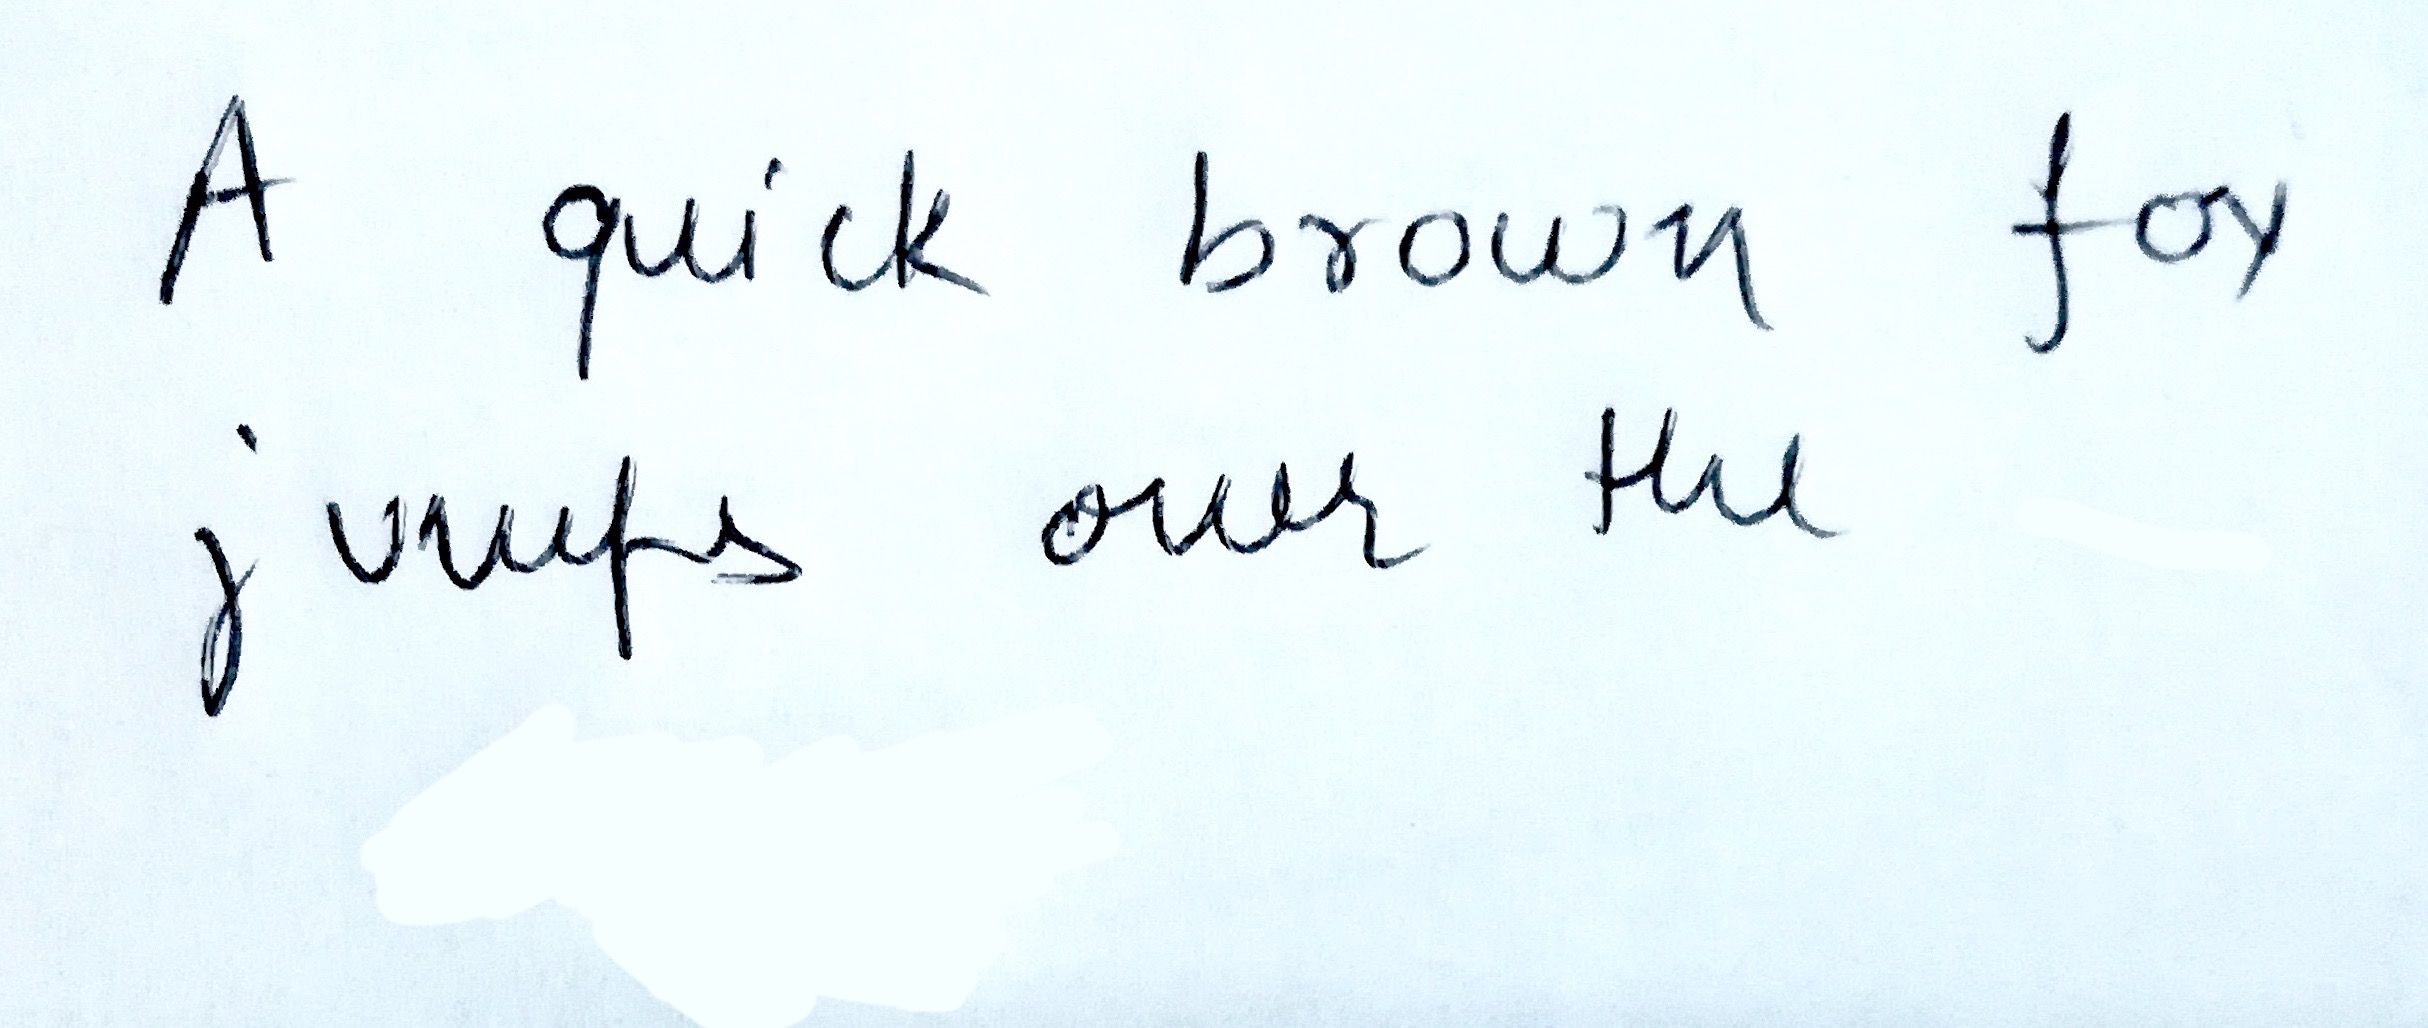 A quick brown fox
jumps over the